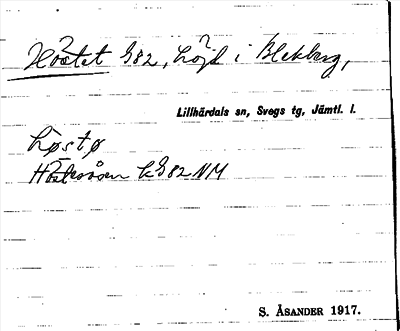 Höstet 982, höjd i Blekberg,
Lillhärdals sn, Svegs tg, Jämtl. l.
høstø
Höstesåsen k982NM
S. ÅSANDER 1917.